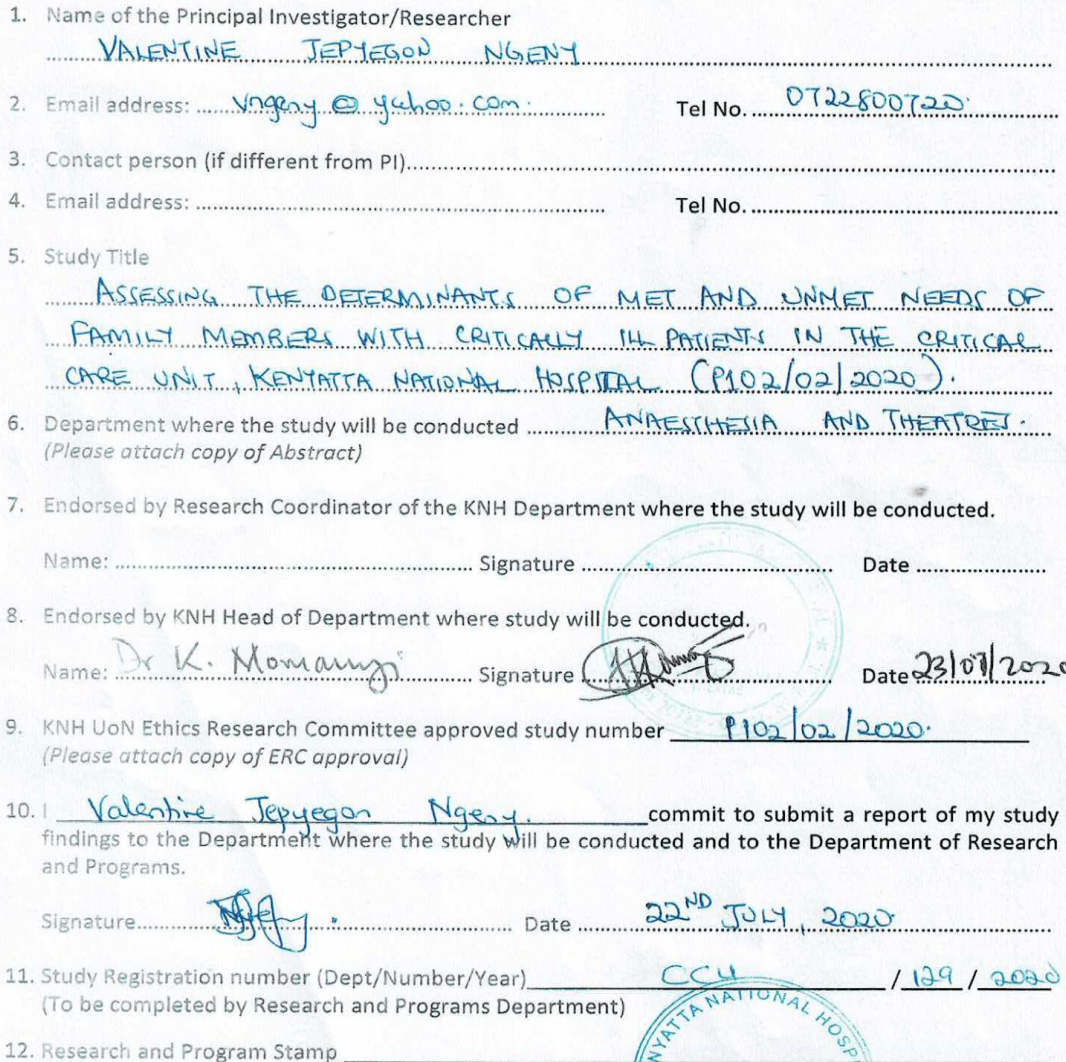 1. Name of the Principal Investigator/Researcher
VALENTINE JEPYEGON NGENY
2. Email address: vngeny@yahoo.com. Tel No. 0722800720.
3. Contact person (if different from PI)
4. Email address: Tel No.
5. Study Title
ASSESSING THE DETERMINANTS OF MET AND UNMET NEEDS OF
FAMILY MEMBERS WITH CRITICALLY ILL PATIENTS IN THE CRITICAL
CARE UNIT, KENYATTA NATIONAL HOSPITAL (P102/02/2020).
6. Department where the study will be conducted ANAESTHESIA AND THEATRES.
(Please attach copy of Abstract)
7. Endorsed by Research Coordinator of the KNH Department where the study will be conducted.
Name: Signature Date
8. Endorsed by KNH Head of Department where study will be conducted.
Name: Dr K. Momanyi Signature Date 23/07/2020
9. KNH UoN Ethics Research Committee approved study number P102/02/2020.
(Please attach copy of ERC approval)
10. I Valentine Jepyegon Ngeny. commit to submit a report of my study
findings to the Department where the study will be conducted and to the Department of Research
and Programs.
Signature Date 22ND JULY, 2020
11. Study Registration number (Dept/Number/Year) CCU / 129 / 2020
(To be completed by Research and Programs Department)
NYATTA NATIONAL HOSP
12. Research and Program Stamp